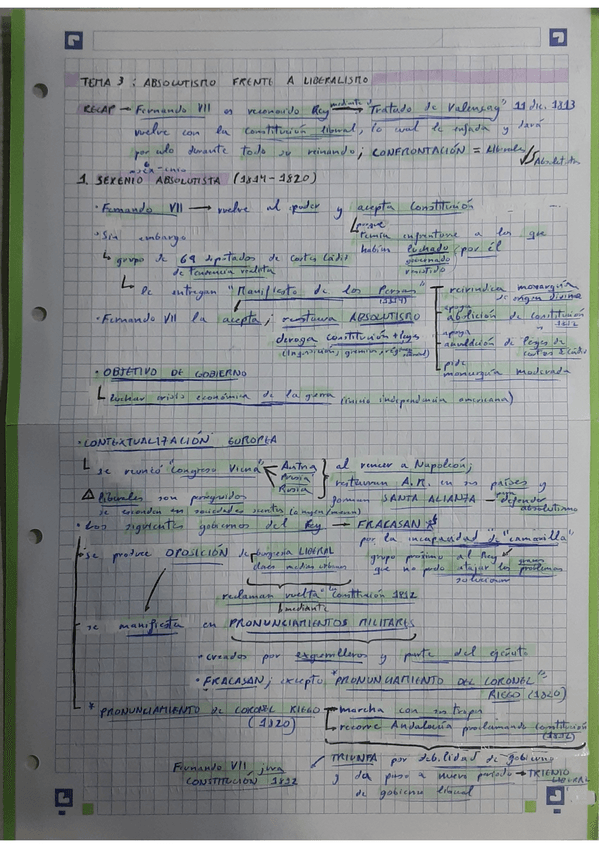 TEMA 3: ABSOLUTISMO FRENTE A LIBERALISMO
RECAP → Fernando VII es reconocido Rey mediante "Tratado de Valençay" 11 dic. 1813
vuelve con la constitución liberal, lo cual le enfada y dará
por ello durante todo su reinado; CONFRONTACIÓN = Liberales // Absolutistas
1. SEXENIO ABSOLUTISTA (1814-1820)
· Fernando VII → vuelve al poder y acepta Constitución
porque
· Sin embargo
temía enfrentarse a los que
habían luchado por él
↳ grupo de 69 diputados de Cortes Cádiz
de tendencia realista
↳ Le entregan "Manifiesto de los Persas"
(1814)
reivindica monarquía
de origen divino
apoya
abolición de constitución
1812
apoya
anulación de leyes de
Cortes Cádiz
pide
monarquía moderada
· Fernando VII la acepta; restaura ABSOLUTISMO
deroga constitución + leyes
(Inquisición, gremios, régimen señorial)
· OBJETIVO DE GOBIERNO
↳ luchar crisis económica de la guerra (inicio independencia americana)
· CONTEXTUALIZACIÓN EUROPEA
↳ se reunió "Congreso Viena" Austria
Prusia
Rusia
al vencer a Napoleón;
restauran A.R. en sus países y
forman SANTA ALIANZA → defender
absolutismo
⚠ liberales son perseguidos
se esconden en sociedades secretas
· Los siguientes gobiernos del Rey → FRACASAN
por la incapacidad de "camarilla"
grupo próximo al Rey
que no pudo atajar los problemas
solucionar
· se produce OPOSICIÓN de burguesía LIBERAL
clases medias urbanas
reclaman vuelta a la Constitución 1812
mediante
se manifiesta en PRONUNCIAMIENTOS MILITARES
· creados por exguerrilleros y parte del ejército
· FRACASAN; excepto *PRONUNCIAMIENTO DEL CORONEL
RIEGO (1820)
* PRONUNCIAMIENTO DE CORONEL RIEGO
(1820)
→ marcha con su tropa
→ recorre Andalucía proclamando constitución
(1812)
TRIUNFA por debilidad de gobierno
y da paso a nuevo período → TRIENIO
LIBERAL
de gobierno liberal
Fernando VII jura
CONSTITUCIÓN 1812